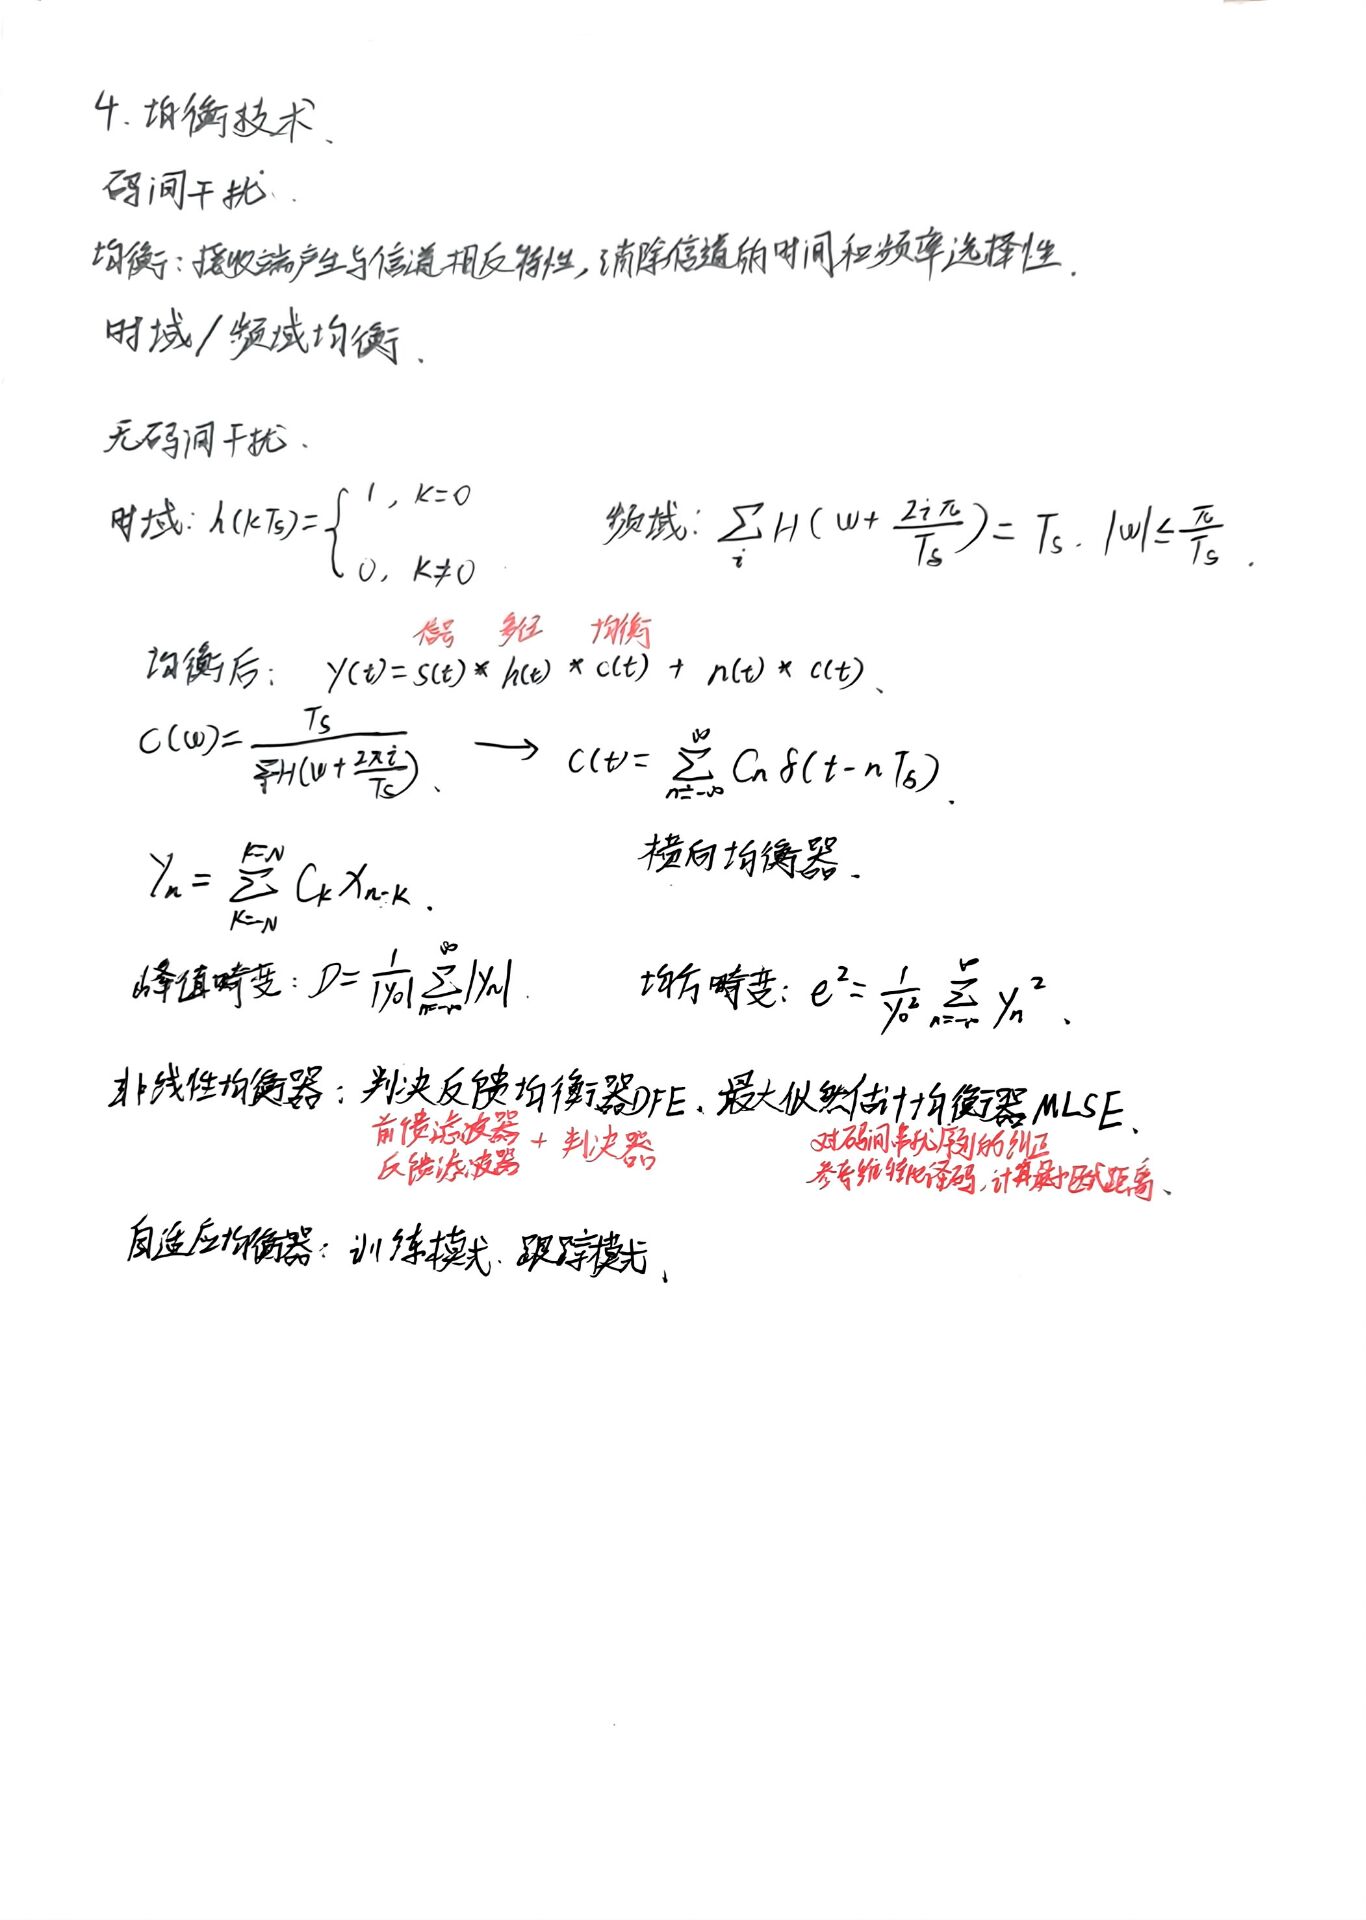 4. 均衡技术、
码间干扰.
均衡:接收端产生与信道相反特性,消除信道的时间和频率选择性.
时域/频域均衡.
无码间干扰.
时域: h(kTs)={1, k=0 0, k≠0 频域: Σ_i H(w+2iπ/Ts)=Ts. |w|≤π/Ts.
信号 多径 均衡
均衡后: y(t)=s(t)*h(t)*c(t)+n(t)*c(t)、
C(w)=Ts/ΣH(w+2πi/Ts)、 → c(t)=Σ_{n=-∞}^{∞} Cn δ(t-nTs).
横向均衡器.
Yn=Σ_{K=-N}^{K=N} C_K X_{n-K}.
峰值畸变: D=1/|y0| Σ_{n=-∞}^{∞}|yn|. 均方畸变: e²=1/y0² Σ_{n=-∞}^{∞} yn²、
非线性均衡器:判决反馈均衡器DFE、最大似然估计均衡器MLSE、
前馈滤波器 + 判决器 对码间串扰序列的纠正
反馈滤波器 参考维特比译码,计算最小欧式距离、
自适应均衡器:训练模式、跟踪模式、